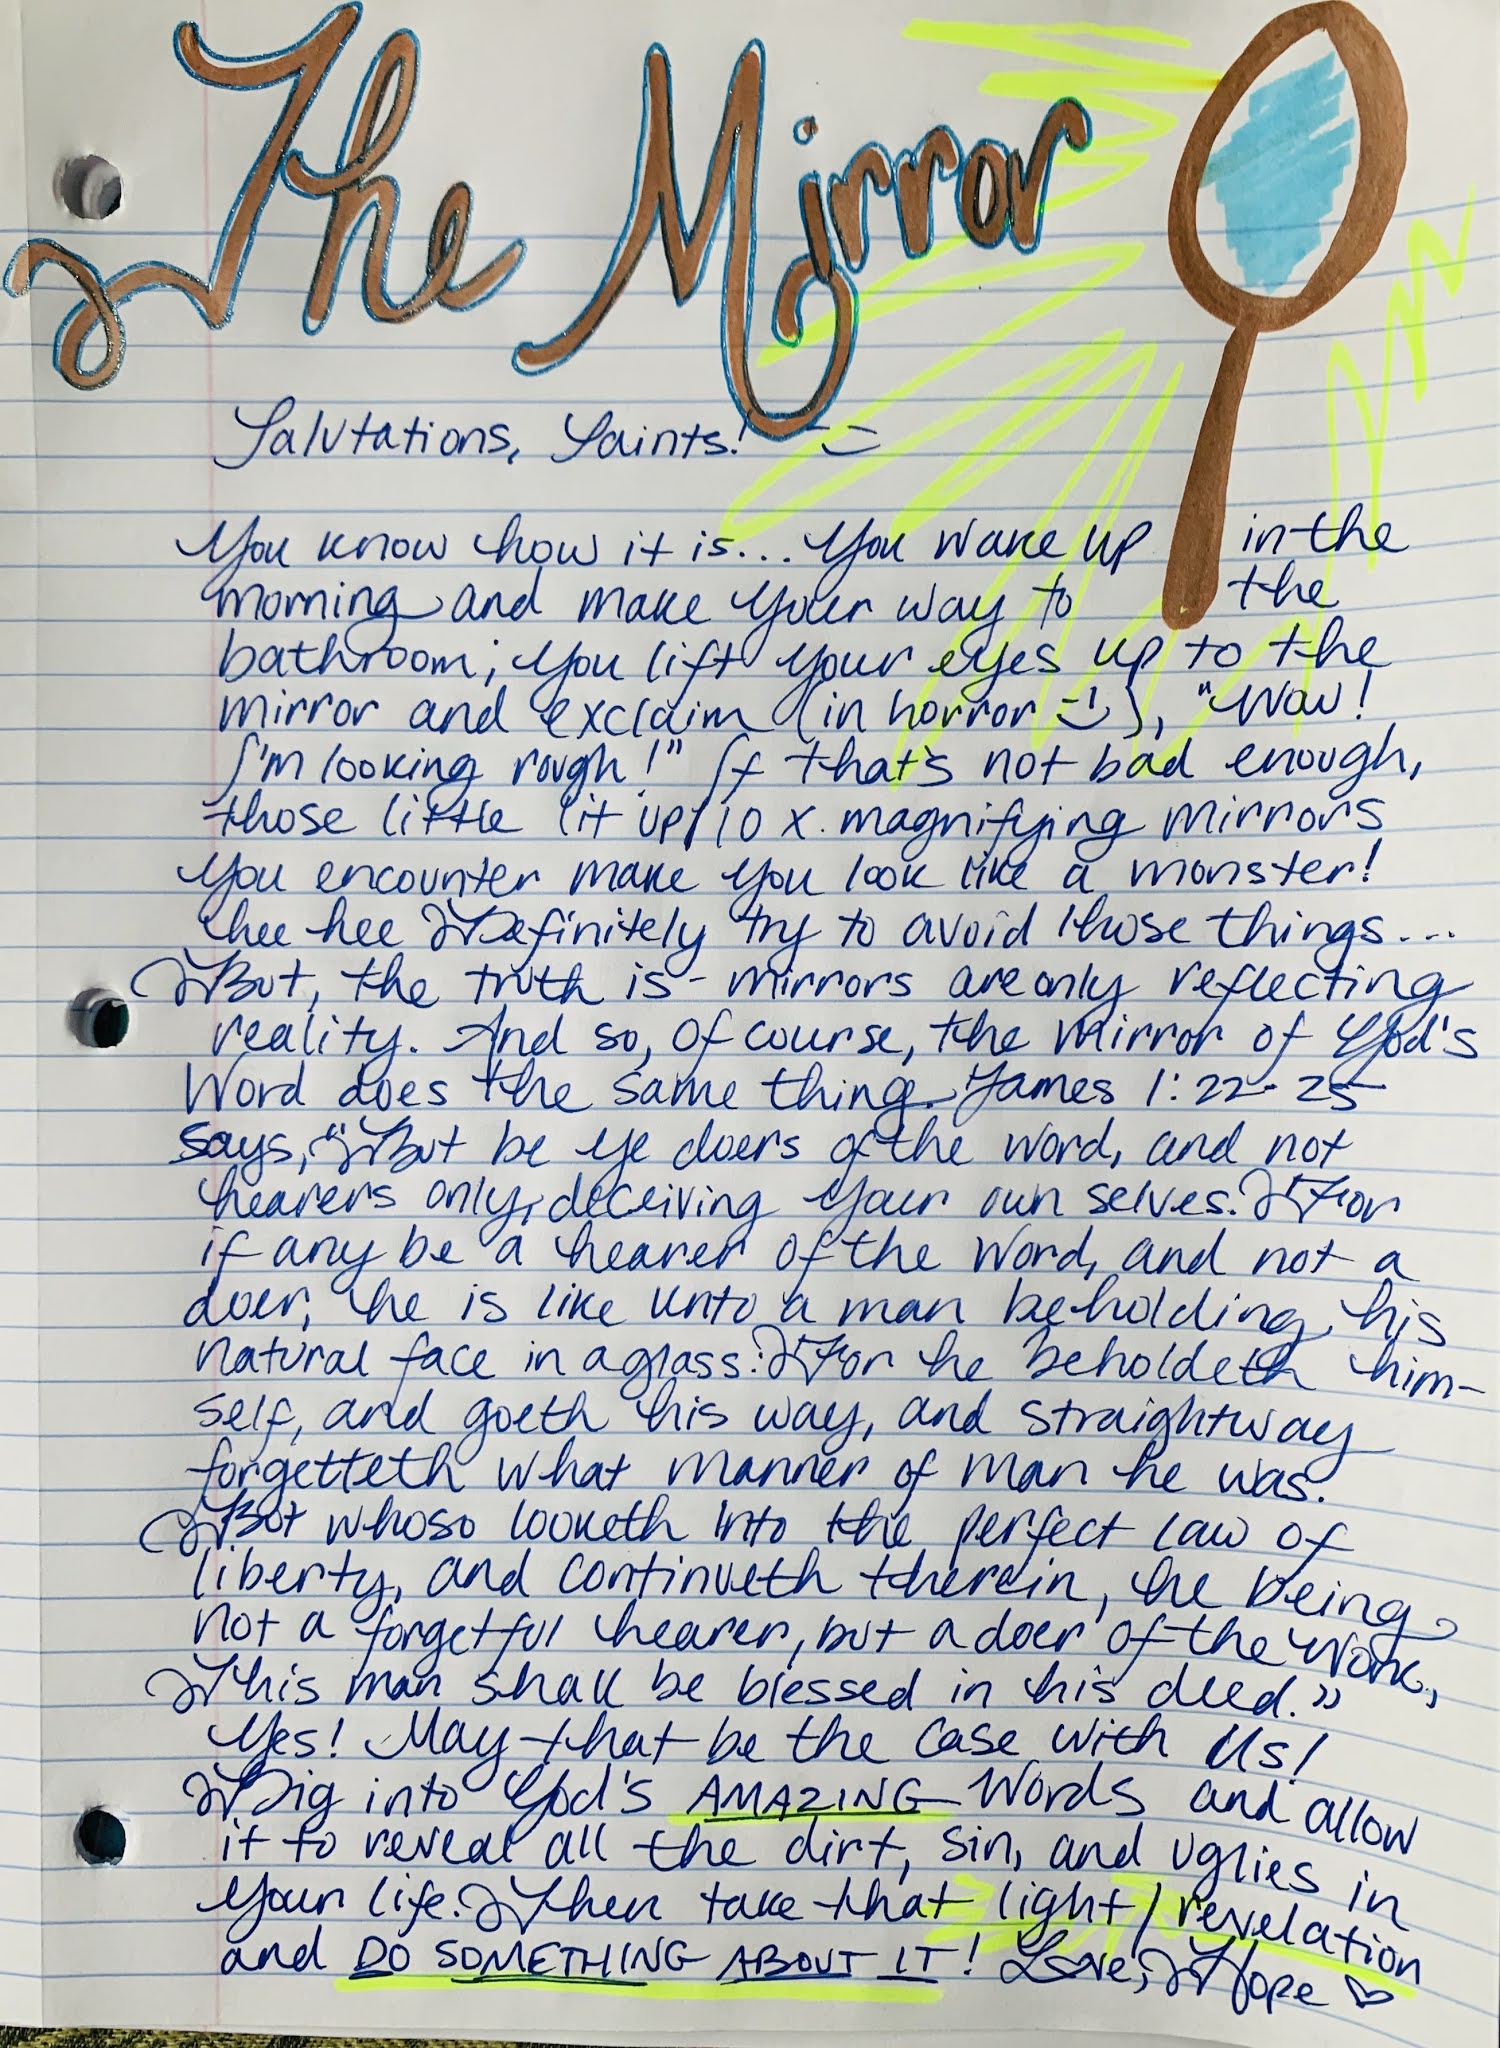 The Mirror
Salutations, Saints! :)
You know how it is... You wake up in the
morning and make your way to the
bathroom; you lift your eyes up to the
mirror and exclaim (in horror :) ), "Wow!
I'm looking rough!" If that's not bad enough,
those little lit up/10 x. magnifying mirrors
you encounter make you look like a monster!
hee hee Definitely try to avoid those things...
But, the truth is - mirrors are only reflecting
reality. And so, of course, the mirror of God's
Word does the same thing. James 1:22-25
says, "But be ye doers of the word, and not
hearers only, deceiving your own selves. For
if any be a hearer of the word, and not a
doer, he is like unto a man beholding his
natural face in a glass: For he beholdeth him-
self, and goeth his way, and straightway
forgetteth what manner of man he was.
But whoso looketh into the perfect law of
liberty, and continueth therein, he being
not a forgetful hearer, but a doer of the work,
This man shall be blessed in his deed."
Yes! May that be the case with us!
Dig into God's AMAZING Words and allow
it to reveal all the dirt, sin, and uglies in
your life. Then take that light/revelation
and DO SOMETHING ABOUT IT! Love, Hope ♡